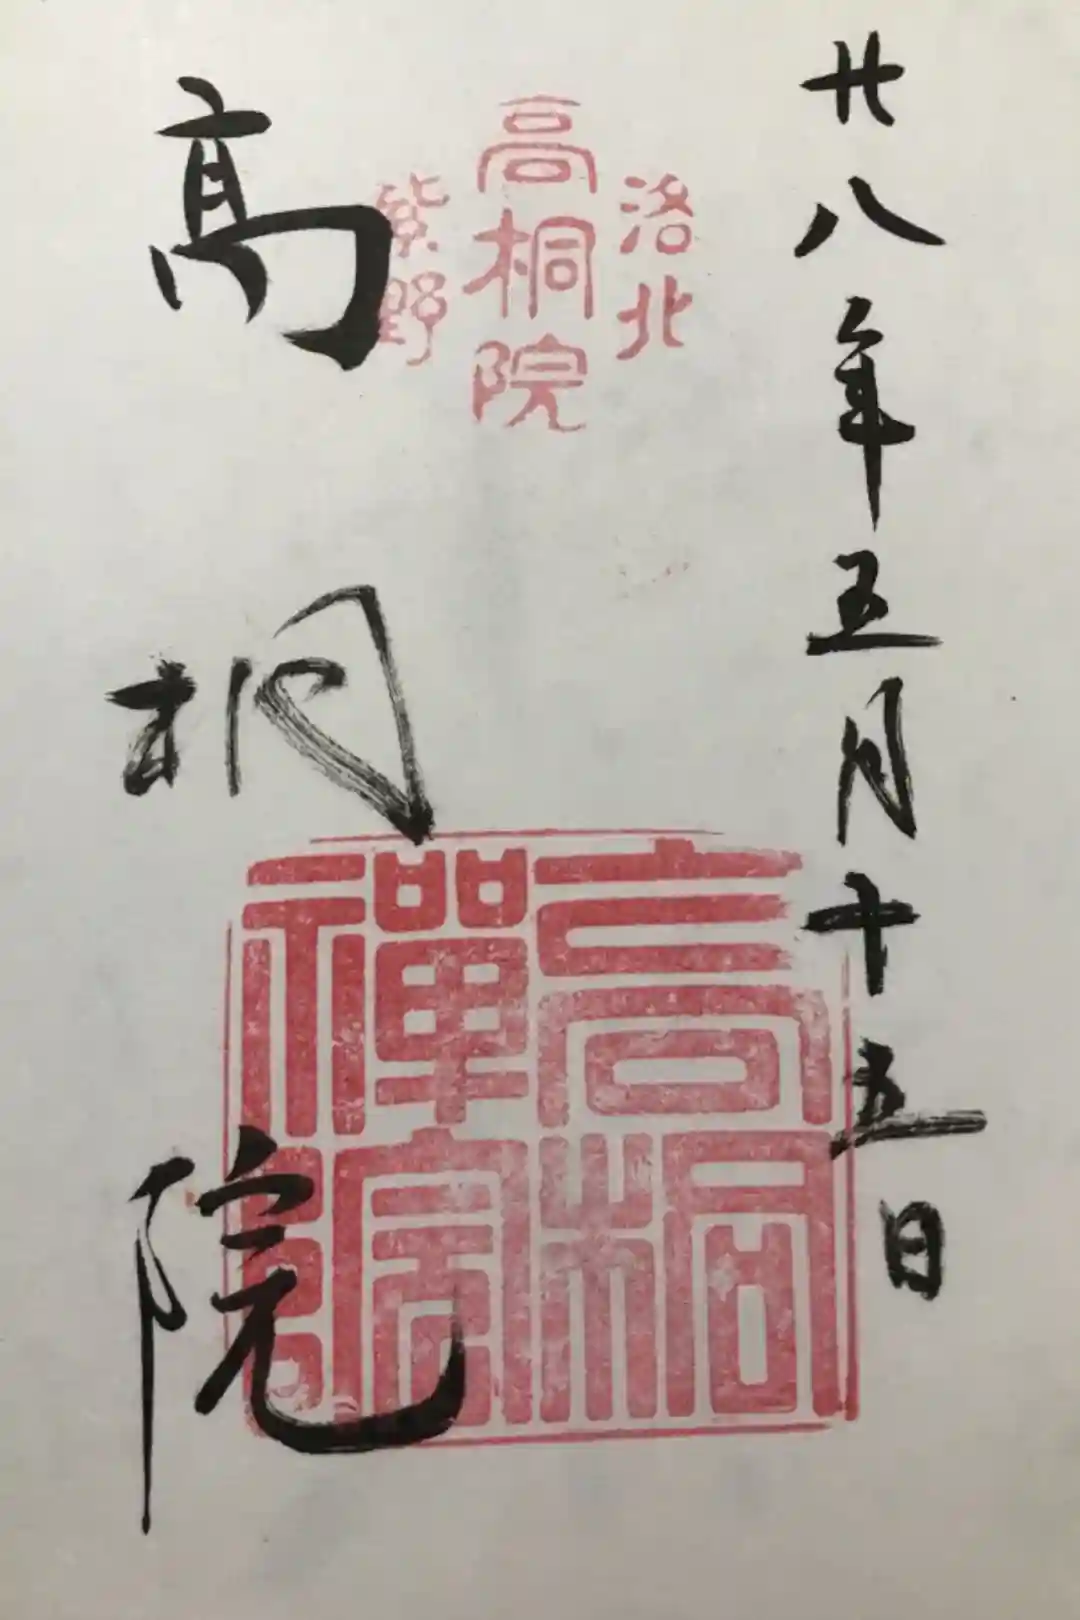 廿八年五月十五日
洛北
高桐院
紫野
高桐院
高桐
禅院